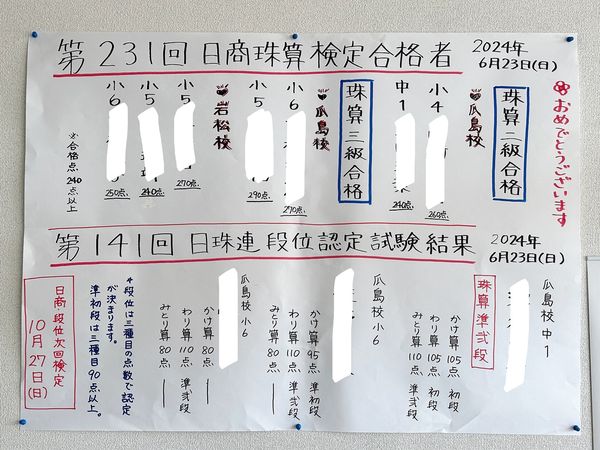 第231回 日商珠算検定合格者
2024年
6月23日(日)
おめでとうございます
珠算二級合格
瓜島校
小4
260点
中1
240点
珠算三級合格
瓜島校
小6
270点
小5
290点
岩松校
小5
270点
小5
240点
小6
250点
※合格点240点以上
第141回 日珠連段位認定試験結果
2024年
6月23日(日)
瓜島校 中1
珠算準弐段
かけ算 105点 初段
わり算 105点 初段
みとり算 110点 準弐段
瓜島校 小6
かけ算 95点 準初段
わり算 110点 準弐段
みとり算 80点 ―
瓜島校 小6
かけ算 80点 ―
わり算 110点 準弐段
みとり算 80点 ―
*段位は三種目の点数で認定
が決まります。
準初段は三種目90点以上。
日商・段位次回検定
10月27日(日)